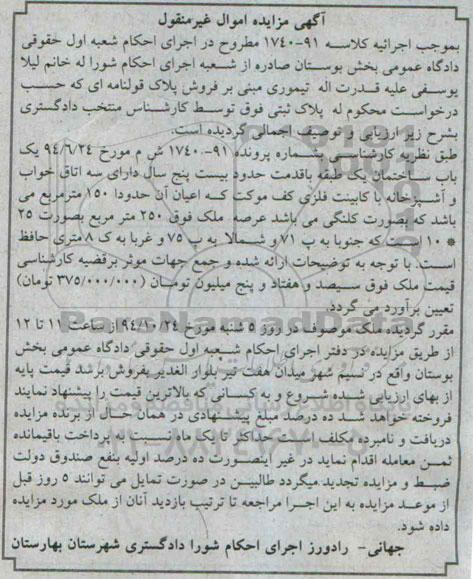 آگهی مزایده اموال غیرمنقول
بموجب اجرائیه کلاسه ۹۱-۱۷۴۰ مطروح در اجرای احکام شعبه اول حقوقی
دادگاه عمومی بخش بوستان صادره از شعبه اجرای احکام شورا له خانم لیلا
یوسفی علیه قدرت اله تیموری مبنی بر فروش پلاک قولنامه ای که حسب
درخواست محکوم له پلاک ثبتی فوق توسط کارشناس منتخب دادگستری
بشرح زیر ارزیابی و توصیف اجمالی گردیده است.
طبق نظریه کارشناسی بشماره پرونده ۹۱-۱۷۴۰ ش م مورخ ۹۴/۶/۲۴ یک
باب ساختمان یک طبقه باقدمت حدود بیست پنج سال دارای سه اتاق خواب
و آشپزخانه با کابینت فلزی کف موکت که اعیان آن حدودا ۱۵۰ مترمربع می
باشد که بصورت کلنگی می باشد عرصه ملک فوق ۲۵۰ متر مربع بصورت ۲۵
* ۱۰ است که جنوبا به پ ۷۱ و شمالا به پ ۷۵ و غربا به ک ۸ متری حافظ
است. با توجه به توضیحات ارائه شده و جمع جهات موثر برقضیه کارشناسی
قیمت ملک فوق سیصد و هفتاد و پنج میلیون تومان (۳۷۵/۰۰۰/۰۰۰ تومان)
تعیین برآورد می گردد.
مقرر گردیده ملک موصوف در روز ۵ شنبه مورخ ۹۴/۱۰/۲۴ از ساعت ۱۱ تا ۱۲
از طریق مزایده در دفتر اجرای احکام شعبه اول حقوقی دادگاه عمومی بخش
بوستان واقع در نسیم شهر میدان هفت تیر بلوار الغدیر بفروش برسد قیمت پایه
از بهای ارزیابی شده شروع و به کسانی که بالاترین قیمت را پیشنهاد نمایند
فروخته خواهد شد ده درصد مبلغ پیشنهادی در همان حال از برنده مزایده
دریافت و نامبرده مکلف است حداکثر تا یک ماه نسبت به پرداخت باقیمانده
ثمن معامله اقدام نماید در غیر اینصورت ده درصد اولیه بنفع صندوق دولت
ضبط و مزایده تجدید میگردد طالبین در صورت تمایل می توانند ۵ روز قبل
از موعد مزایده به این اجرا مراجعه تا ترتیب بازدید آنان از ملک مورد مزایده
داده شود.
جهانی- رادورز اجرای احکام شورا دادگستری شهرستان بهارستان
ParsNamadData